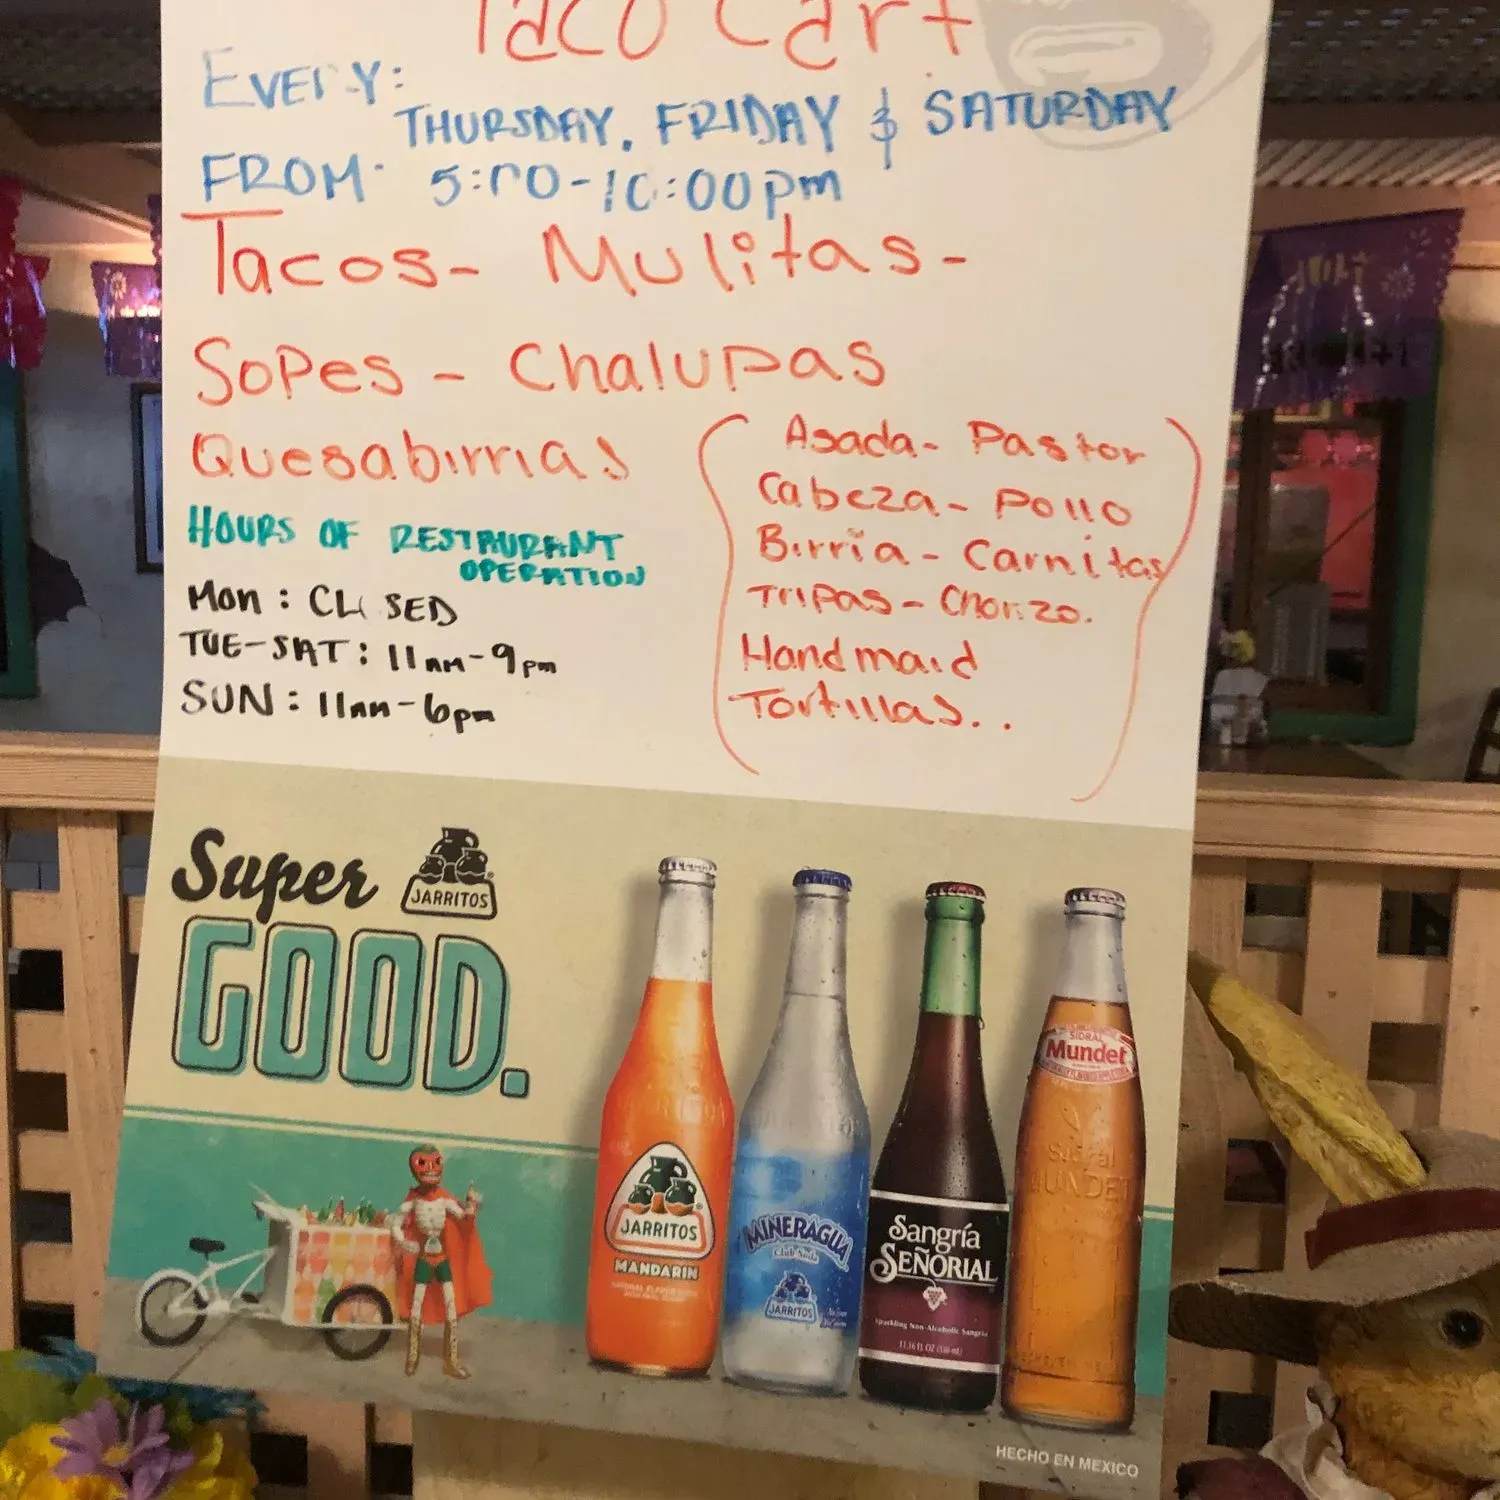 Taco Cart
EVERY:
THURSDAY, FRIDAY & SATURDAY
FROM: 5:00-10:00pm
Tacos- Mulitas-
Sopes - Chalupas
Quesabirrias
Asada- Pastor
Cabeza- Pollo
Birria - Carnitas
Tripas - Chorizo.
Handmaid
Tortillas..
HOURS OF RESTAURANT
OPERATION
Mon: CLOSED
TUE-SAT: 11am-9pm
SUN: 11am-6pm
Super
JARRITOS
GOOD.
JARRITOS
MANDARIN
MINERAGUA
Club Soda
JARRITOS
Sangría
SEÑORIAL
Sparkling Non-Alcoholic Sangria
11.16 FL OZ (330 mL)
SIDRAL
Mundet
Sidral
MUNDET
HECHO EN MEXICO